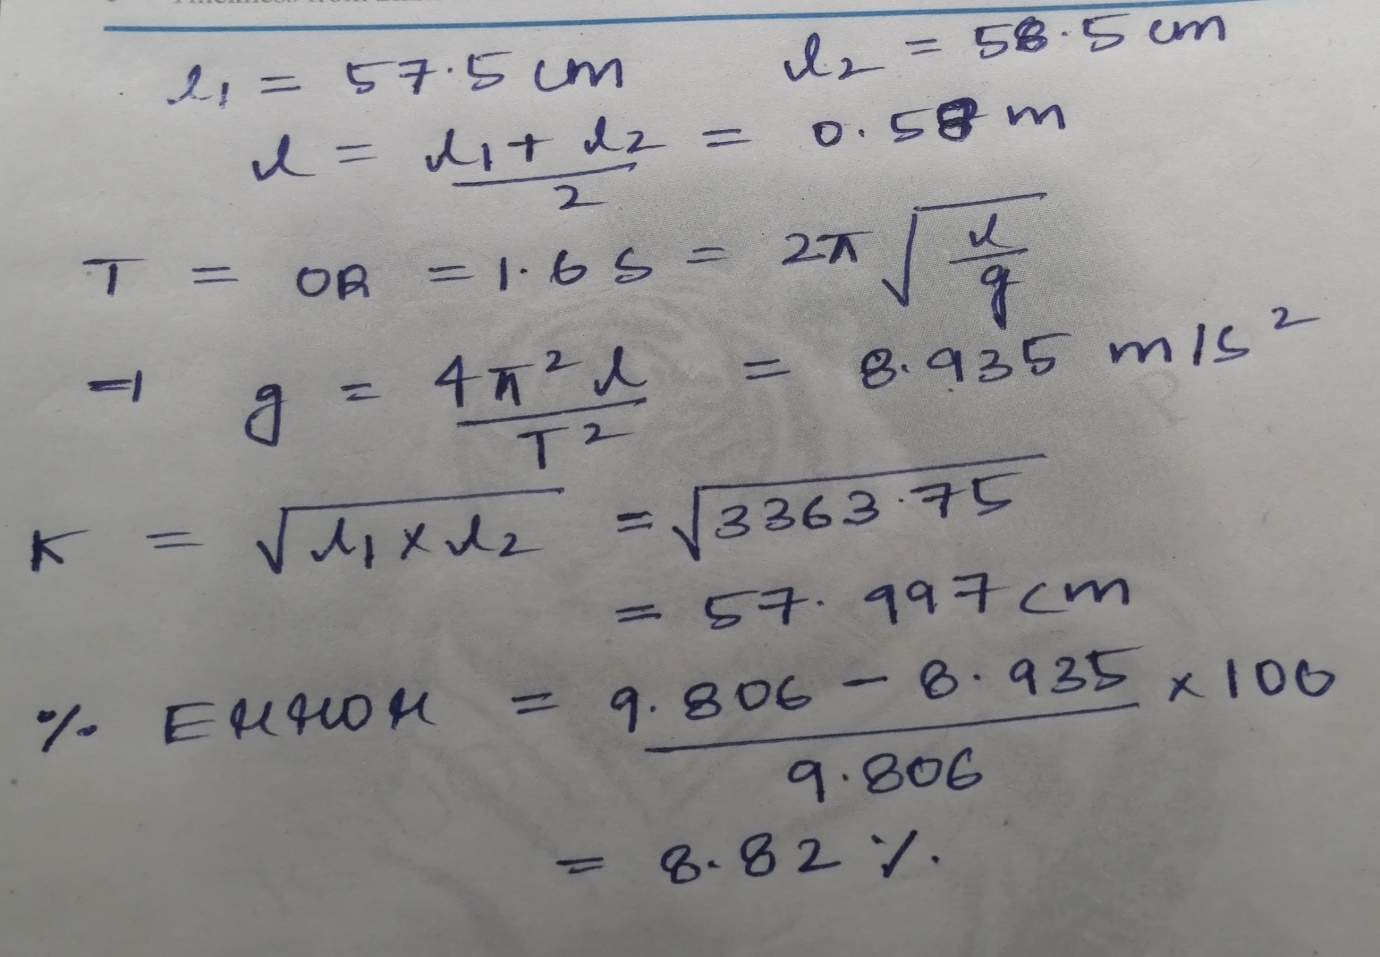 l₁ = 57.5 cm l₂ = 58.5 cm
l = (l₁ + l₂)/2 = 0.58 m
T = OR = 1.6 S = 2π √(l/g)
⇒ g = 4π² l / T² = 8.935 m/s²
K = √(l₁ × l₂) = √3363.75
= 57.997 cm
% ERROR = (9.806 − 8.935)/9.806 × 100
= 8.82 %.